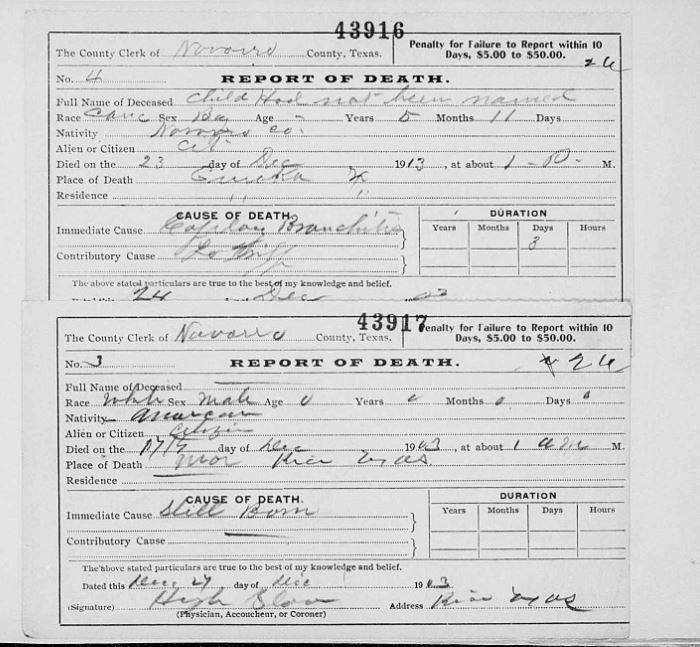 43916
The County Clerk of Navarro County, Texas. Penalty for Failure to Report within 10 Days, $5.00 to $50.00.
26
No. 4 REPORT OF DEATH.
Full Name of Deceased Child Had not been named
Race Cauc Sex Boy Age - Years 5 Months 11 Days
Nativity Navarro Co.
Alien or Citizen Cit
Died on the 23 day of Dec 1913, at about 1 - P - M.
Place of Death Eureka
Residence " "
CAUSE OF DEATH. DURATION
Immediate Cause Capilary Bronchitis Years Months Days Hours
Contributory Cause La Gripp 3
The above stated particulars are true to the best of my knowledge and belief.
24 Dec
43917
The County Clerk of Navarro County, Texas. Penalty for Failure to Report within 10 Days, $5.00 to $50.00.
No. 3 REPORT OF DEATH. 26
Full Name of Deceased
Race White Sex Male Age 0 Years 0 Months 0 Days 0
Nativity American
Alien or Citizen Citizen
Died on the 17th day of Dec 1913, at about 1 am M.
Place of Death near Rice Texas
Residence
CAUSE OF DEATH. DURATION
Immediate Cause Still Born Years Months Days Hours
Contributory Cause
The above stated particulars are true to the best of my knowledge and belief.
Dated this Dec 27 day of Dec 1913
(Signature) Hugh Sloan Address Rice Texas
(Physician, Accoucheur, or Coroner)